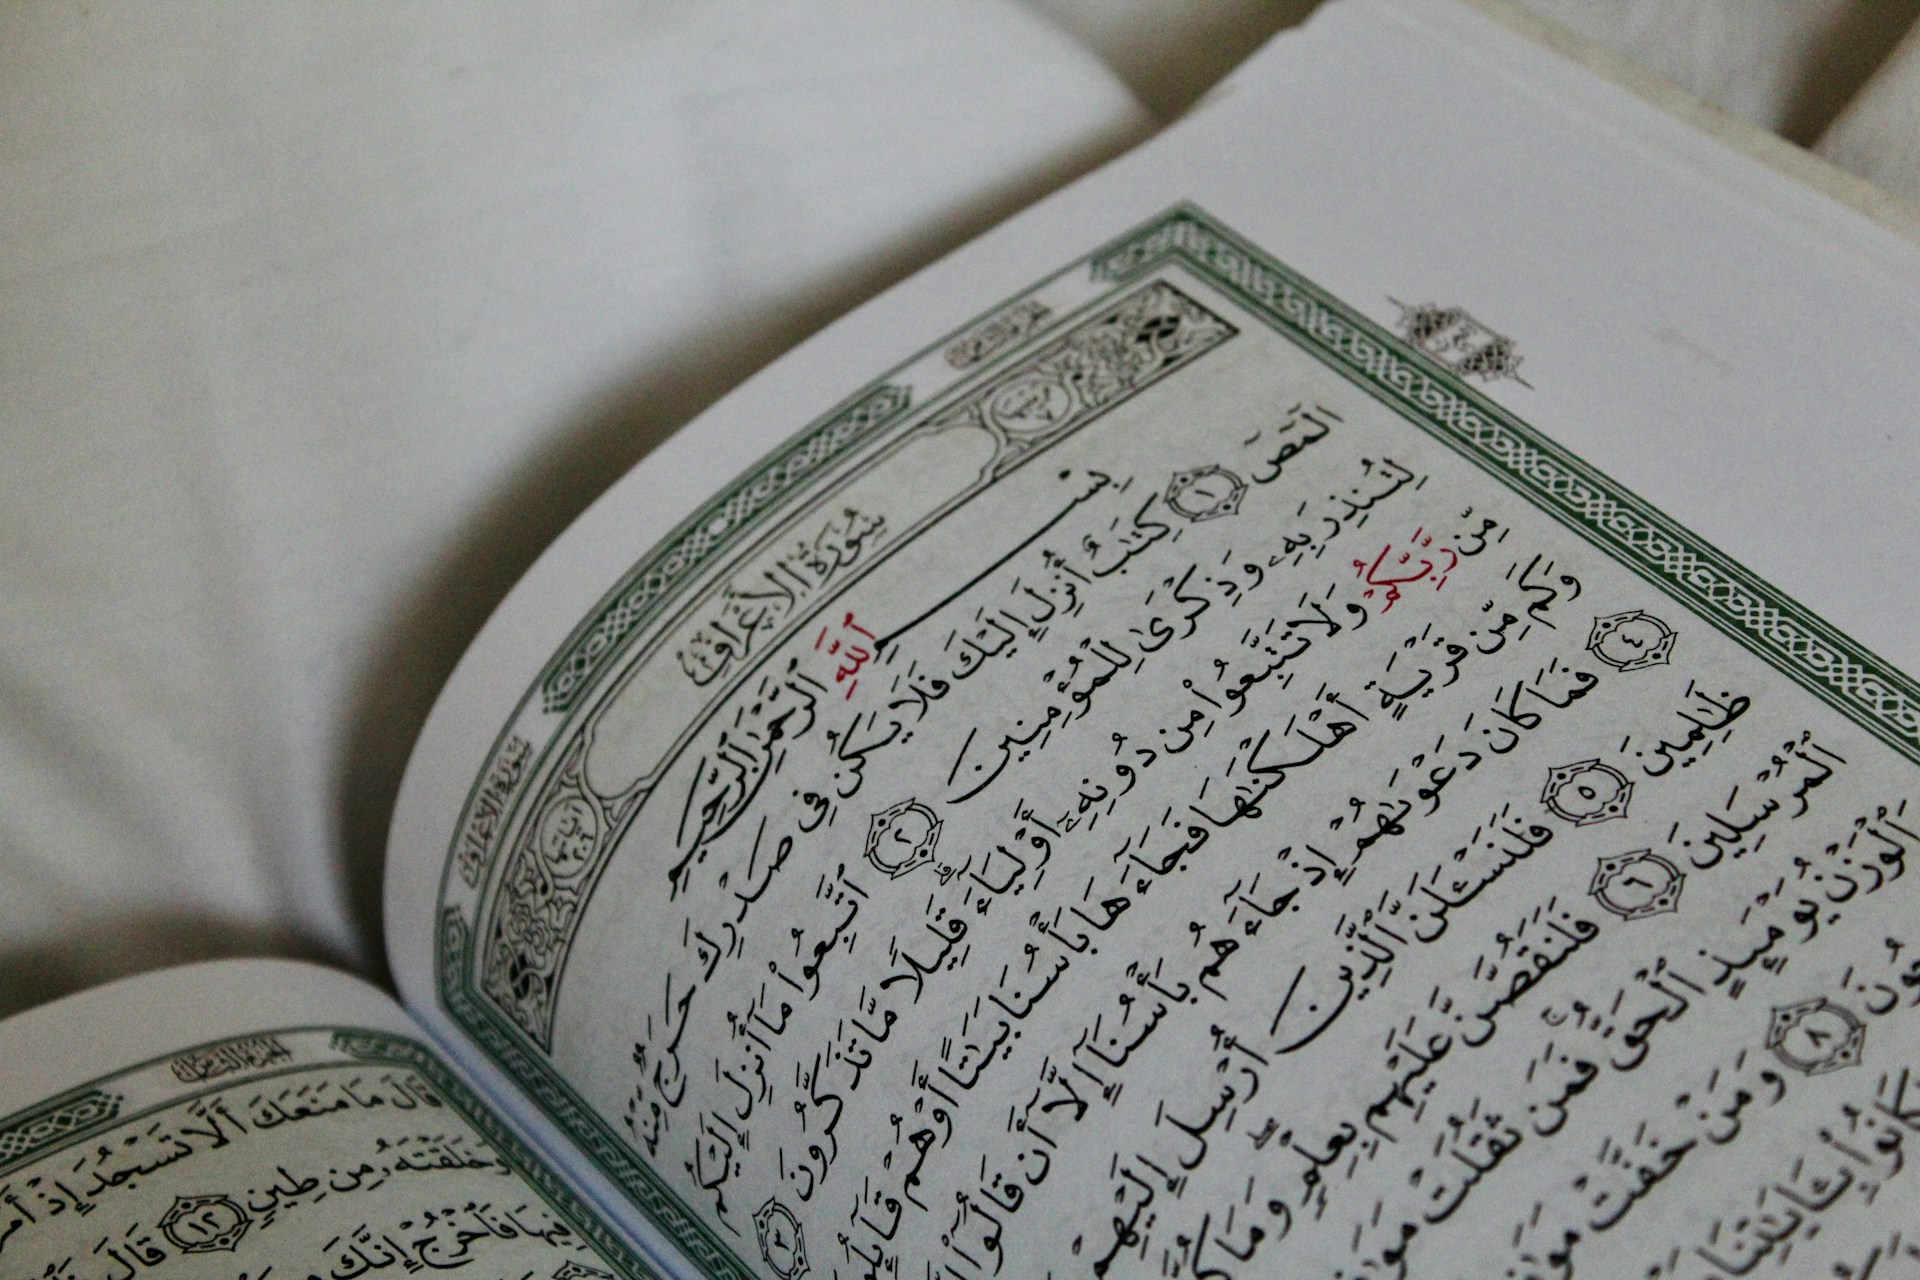 سُورَةُ الأَعْرَافِ
بِسْمِ ٱللَّهِ ٱلرَّحْمَٰنِ ٱلرَّحِيمِ
الٓمٓصٓ ١ كِتَٰبٌ أُنزِلَ إِلَيْكَ فَلَا يَكُن فِى صَدْرِكَ حَرَجٌ مِّنْهُ
لِتُنذِرَ بِهِۦ وَذِكْرَىٰ لِلْمُؤْمِنِينَ ٢ ٱتَّبِعُوا۟ مَآ أُنزِلَ إِلَيْكُم
مِّن رَّبِّكُمْ وَلَا تَتَّبِعُوا۟ مِن دُونِهِۦٓ أَوْلِيَآءَ ۗ قَلِيلًا مَّا تَذَكَّرُونَ ٣
وَكَم مِّن قَرْيَةٍ أَهْلَكْنَٰهَا فَجَآءَهَا بَأْسُنَا بَيَٰتًا أَوْ هُمْ قَآئِلُونَ
٤ فَمَا كَانَ دَعْوَىٰهُمْ إِذْ جَآءَهُم بَأْسُنَآ إِلَّآ أَن قَالُوٓا۟
ظَٰلِمِينَ ٥ فَلَنَسْـَٔلَنَّ ٱلَّذِينَ أُرْسِلَ إِلَيْهِمْ
ٱلْمُرْسَلِينَ ٦ فَلَنَقُصَّنَّ عَلَيْهِم بِعِلْمٍ ۖ وَمَا كُنَّا
وَٱلْوَزْنُ يَوْمَئِذٍ ٱلْحَقُّ ۚ فَمَن ثَقُلَتْ
٨ وَمَنْ خَفَّتْ
كَانُوا۟ بِـَٔايَٰتِنَا
قَالَ مَا مَنَعَكَ أَلَّا تَسْجُدَ إِذْ
وَخَلَقْتَهُۥ مِن طِينٍ ١٢ قَالَ
فِيهَا فَٱخْرُجْ إِنَّكَ